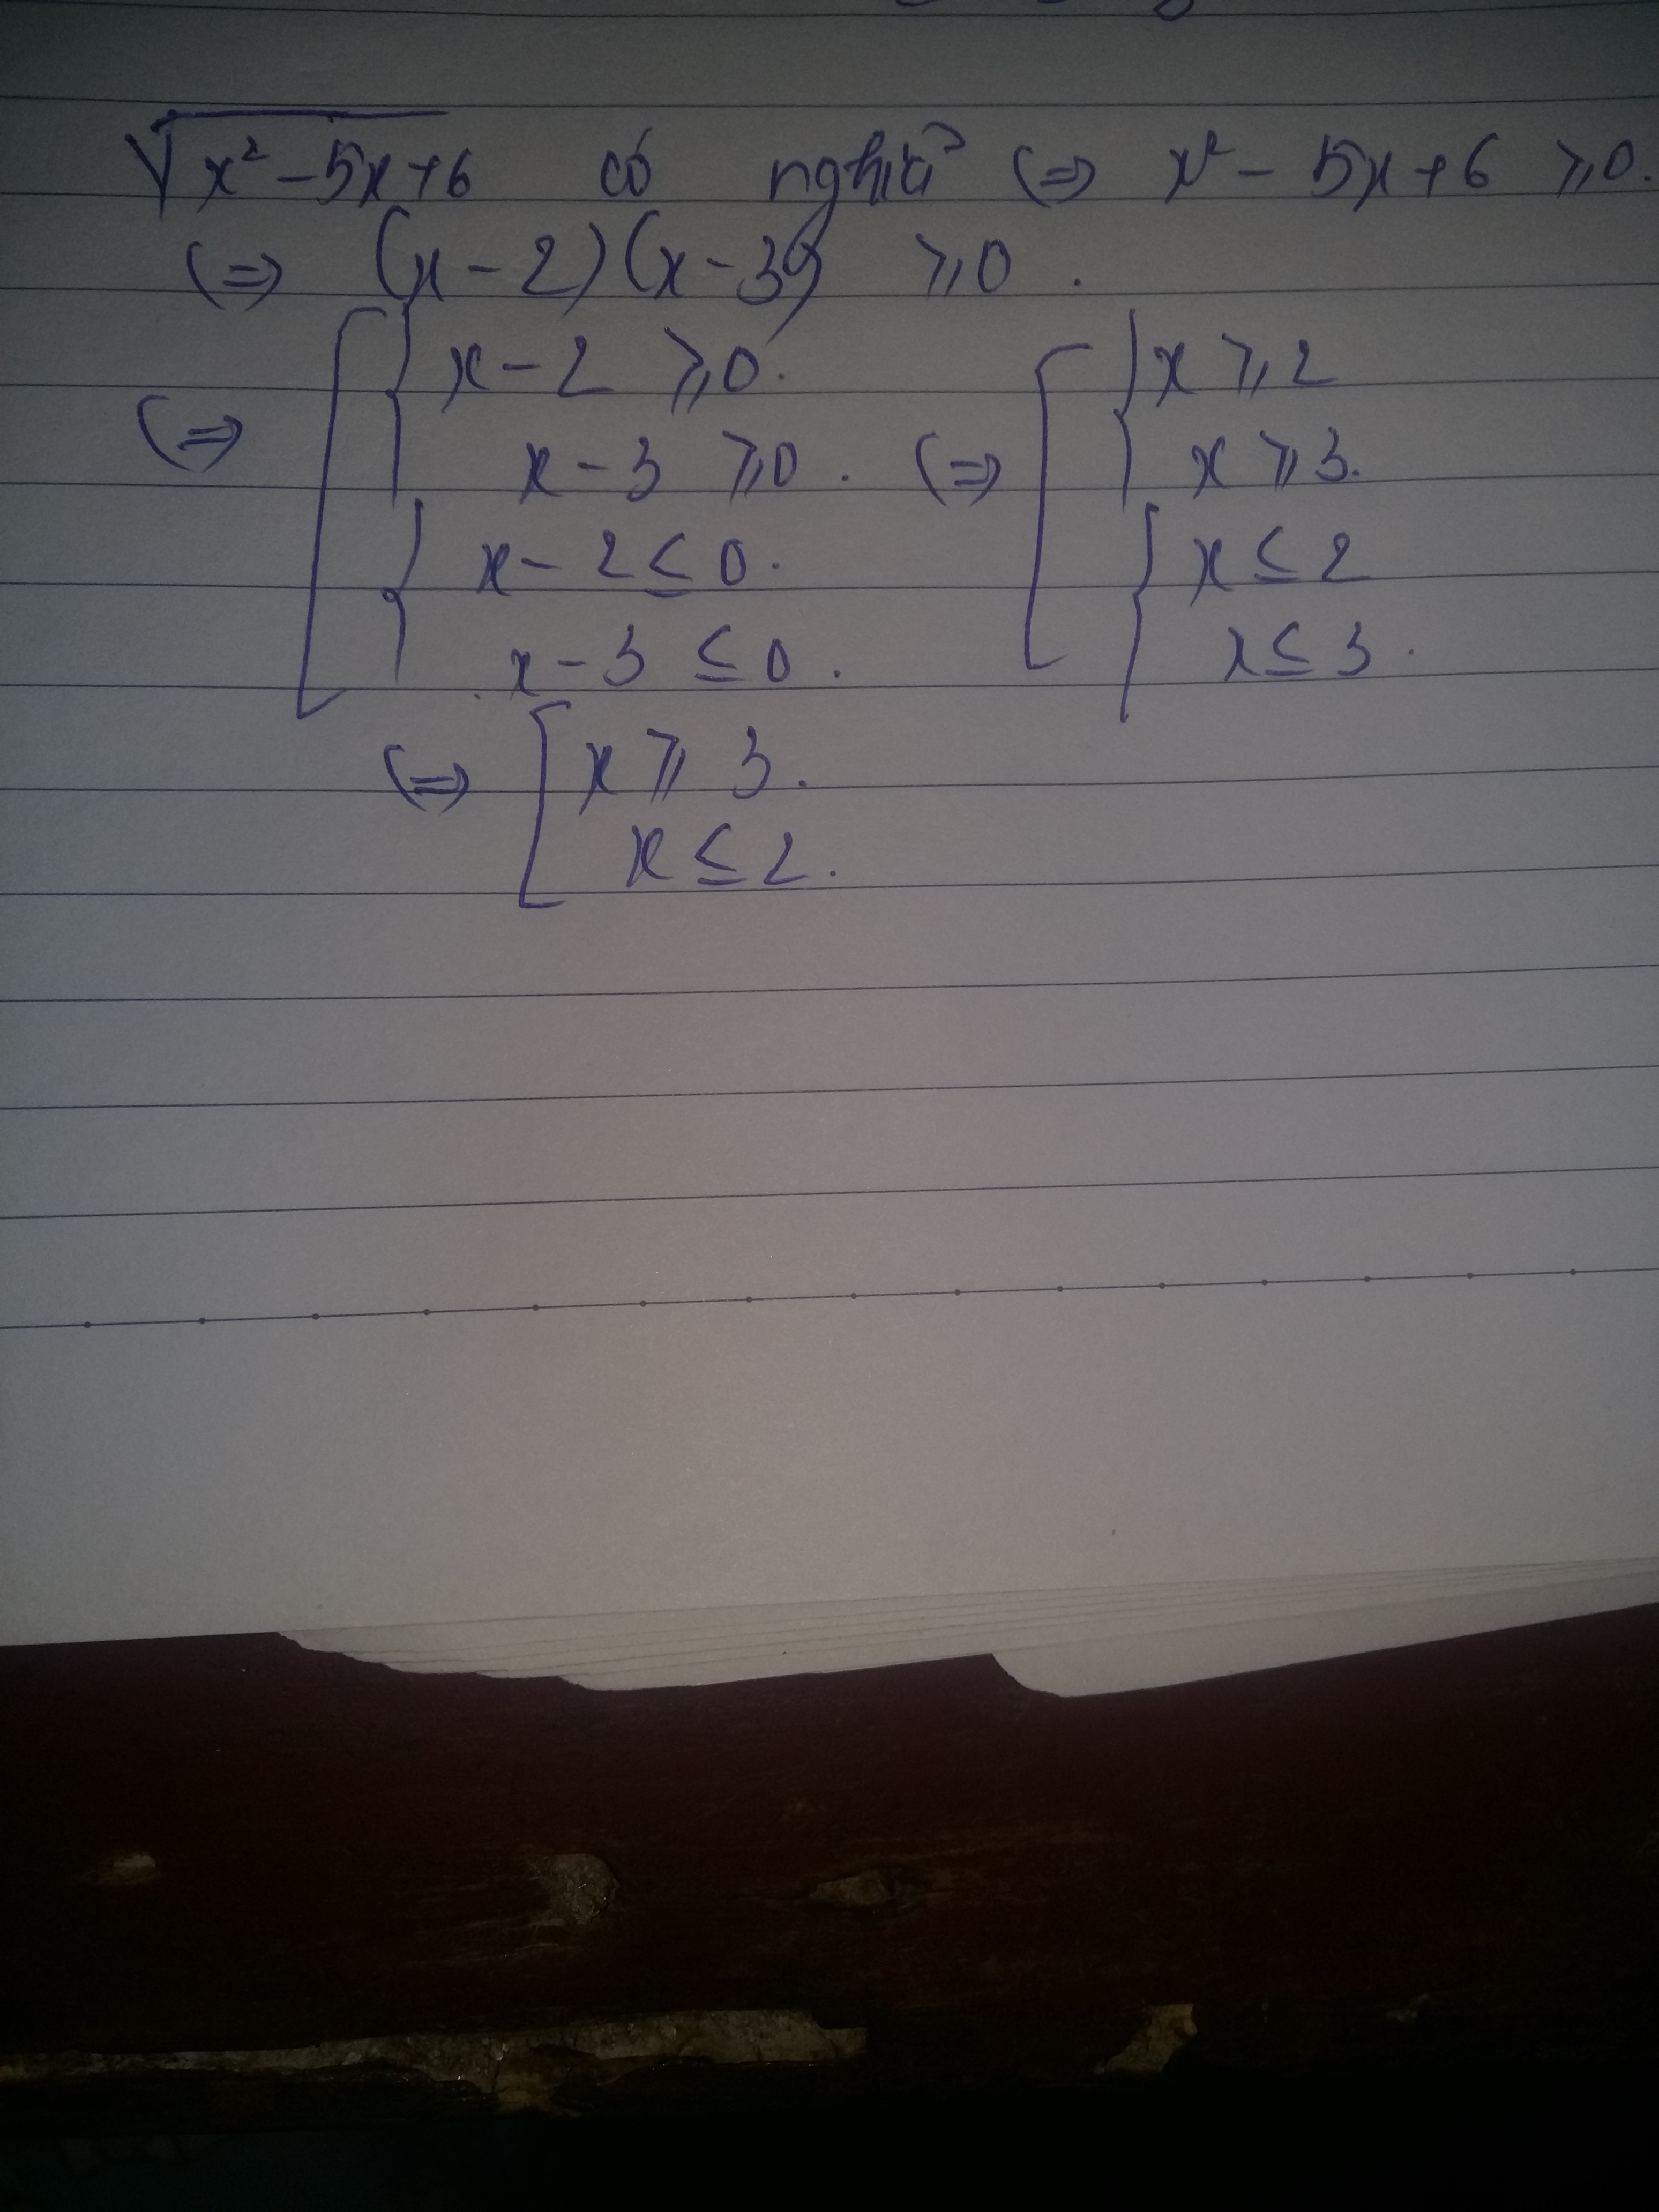 √x² - 5x + 6 có nghĩa (=) x² - 5x + 6 ≥ 0.
(=) (x - 2)(x - 3) ≥ 0.
x - 2 ≥ 0. x ≥ 2
(=) x - 3 ≥ 0. (=) x ≥ 3.
x - 2 ≤ 0. x ≤ 2
x - 3 ≤ 0. x ≤ 3.
(=) [ x ≥ 3.
x ≤ 2.